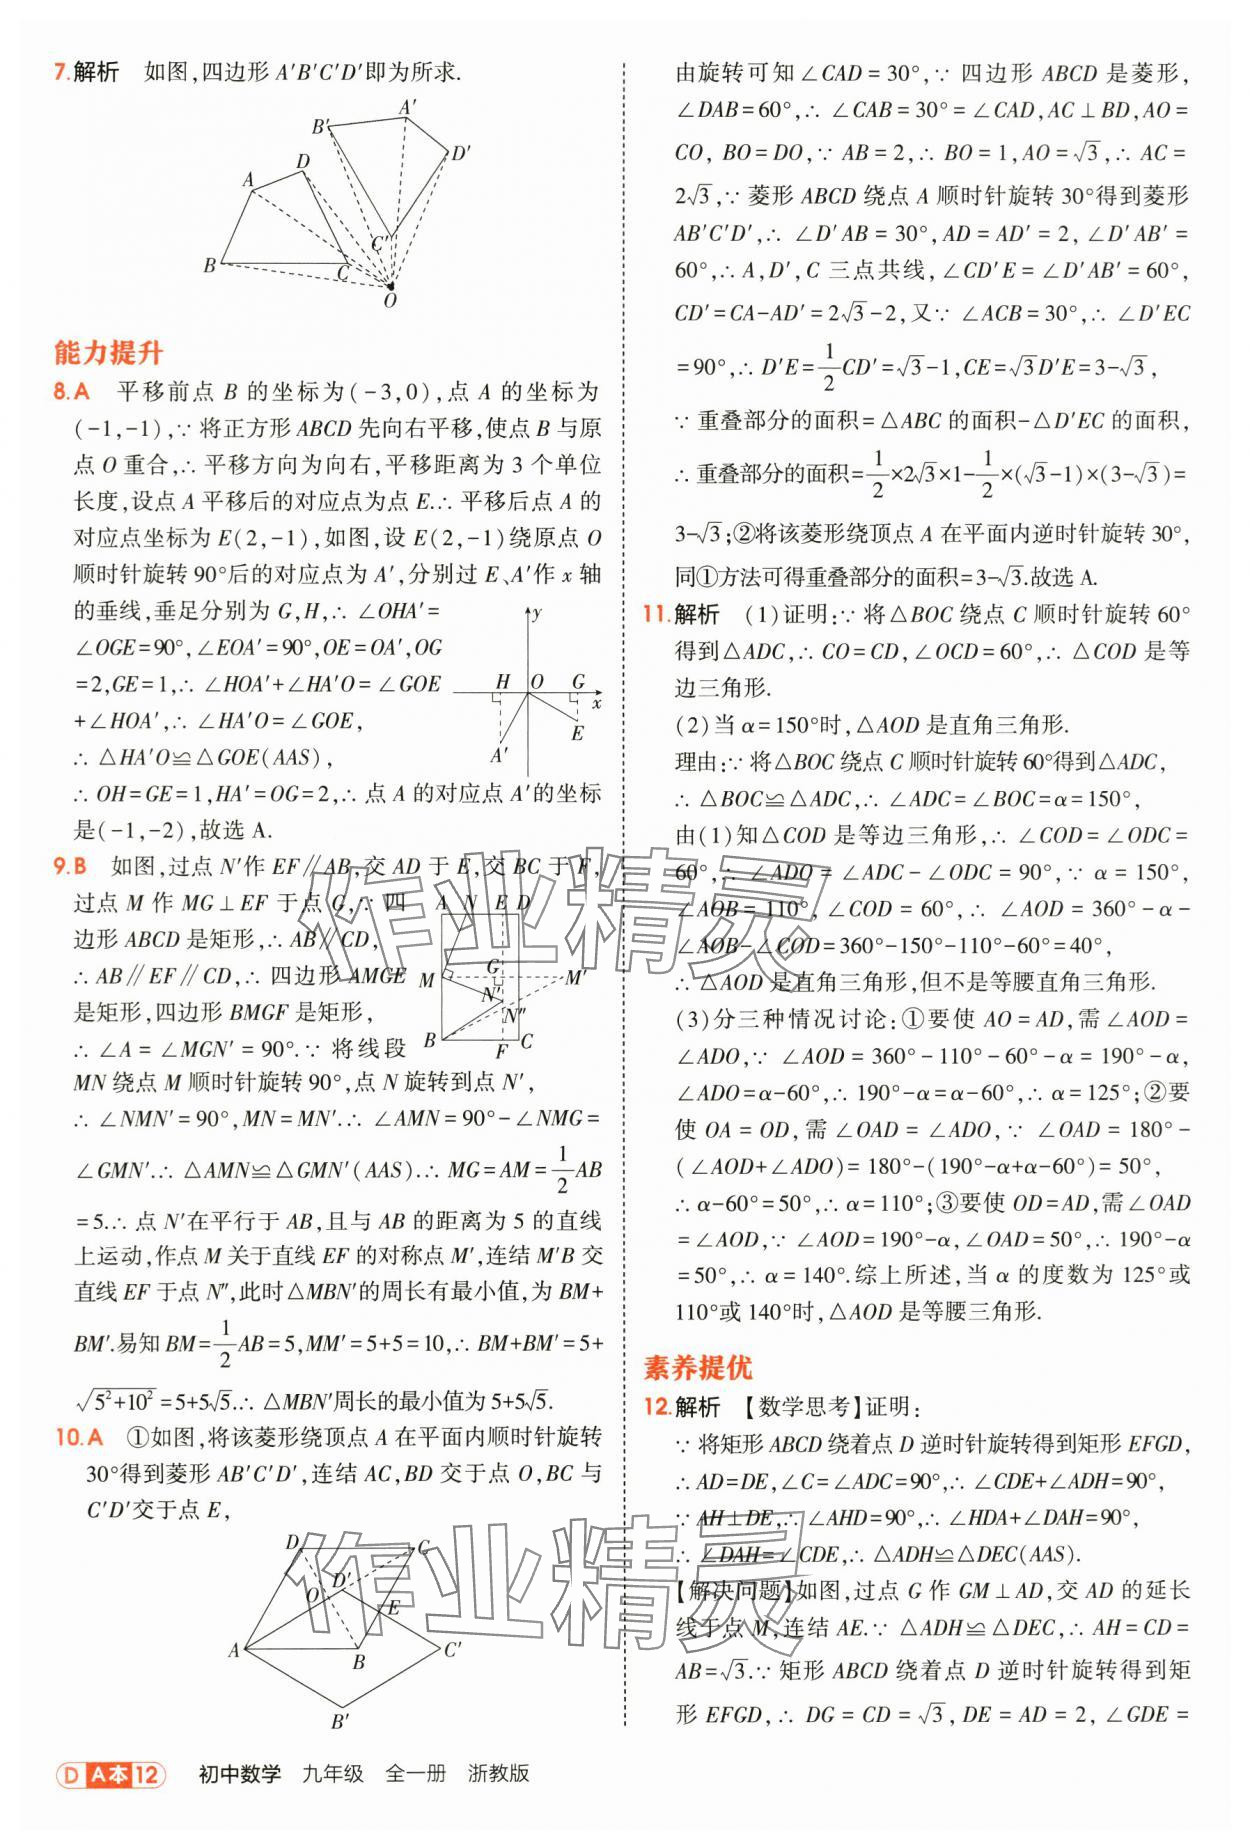 7.解析 如图,四边形 A′B′C′D′即为所求.
A′
B′
D′
D
A
C′
B
C
O
能力提升
8.A 平移前点 B 的坐标为(-3,0),点 A 的坐标为
(-1,-1),∵ 将正方形 ABCD 先向右平移,使点 B 与原
点 O 重合,∴ 平移方向为向右,平移距离为 3 个单位
长度,设点 A 平移后的对应点为点 E.∴ 平移后点 A 的
对应点坐标为 E(2,-1),如图,设 E(2,-1)绕原点 O
顺时针旋转 90°后的对应点为 A′,分别过 E、A′作 x 轴
的垂线,垂足分别为 G,H,∴ ∠OHA′=
∠OGE=90°,∠EOA′=90°,OE=OA′,OG
=2,GE=1,∴ ∠HOA′+∠HA′O=∠GOE
+∠HOA′,∴ ∠HA′O=∠GOE,
∴ △HA′O≌△GOE(AAS),
y
H O G
x
E
A′
∴ OH=GE=1,HA′=OG=2,∴ 点 A 的对应点 A′的坐标
是(-1,-2),故选 A.
9.B 如图,过点 N′作 EF∥AB,交 AD 于 E,交 BC 于 F,
过点 M 作 MG⊥EF 于点 G,∵ 四
边形 ABCD 是矩形,∴ AB∥CD,
∴ AB∥EF∥CD,∴ 四边形 AMGE
是矩形,四边形 BMGF 是矩形,
∴ ∠A=∠MGN′=90°.∵ 将线段
A N E D
M G M′
N′
N″
B F C
MN 绕点 M 顺时针旋转 90°,点 N 旋转到点 N′,
∴ ∠NMN′=90°,MN=MN′.∴ ∠AMN=90°-∠NMG=
∠GMN′.∴ △AMN≌△GMN′(AAS).∴ MG=AM=1/2AB
=5.∴ 点 N′在平行于 AB,且与 AB 的距离为 5 的直线
上运动,作点 M 关于直线 EF 的对称点 M′,连结 M′B 交
直线 EF 于点 N″,此时△MBN′的周长有最小值,为 BM+
BM′.易知 BM=1/2AB=5,MM′=5+5=10,∴ BM+BM′=5+
√(5²+10²)=5+5√5.∴ △MBN′周长的最小值为 5+5√5.
10.A ①如图,将该菱形绕顶点 A 在平面内顺时针旋转
30°得到菱形 AB′C′D′,连结 AC,BD 交于点 O,BC 与
C′D′交于点 E,
D C
O D′
E
A B C′
B′
由旋转可知∠CAD=30°,∵ 四边形 ABCD 是菱形,
∠DAB=60°,∴ ∠CAB=30°=∠CAD,AC⊥BD,AO=
CO, BO=DO,∵ AB=2,∴ BO=1,AO=√3,∴ AC=
2√3,∵ 菱形 ABCD 绕点 A 顺时针旋转 30°得到菱形
AB′C′D′,∴ ∠D′AB=30°,AD=AD′=2,∠D′AB′=
60°,∴ A,D′,C 三点共线,∠CD′E=∠D′AB′=60°,
CD′=CA-AD′=2√3-2,又∵ ∠ACB=30°,∴ ∠D′EC
=90°,∴ D′E=1/2CD′=√3-1,CE=√3D′E=3-√3,
∵ 重叠部分的面积=△ABC 的面积-△D′EC 的面积,
∴ 重叠部分的面积=1/2×2√3×1-1/2×(√3-1)×(3-√3)=
3-√3;②将该菱形绕顶点 A 在平面内逆时针旋转 30°,
同①方法可得重叠部分的面积=3-√3.故选 A.
11.解析 (1)证明:∵ 将△BOC 绕点 C 顺时针旋转 60°
得到△ADC,∴ CO=CD,∠OCD=60°,∴ △COD 是等
边三角形.
(2)当 α=150°时,△AOD 是直角三角形.
理由:∵ 将△BOC 绕点 C 顺时针旋转 60°得到△ADC,
∴ △BOC≌△ADC,∴ ∠ADC=∠BOC=α=150°,
由(1)知△COD 是等边三角形,∴ ∠COD=∠ODC=
60°,∴ ∠ADO=∠ADC-∠ODC=90°,∵ α=150°,
∠AOB=110°,∠COD=60°,∴ ∠AOD=360°-α-
∠AOB-∠COD=360°-150°-110°-60°=40°,
∴ △AOD 是直角三角形,但不是等腰直角三角形.
(3)分三种情况讨论:①要使 AO=AD,需∠AOD=
∠ADO,∵ ∠AOD=360°-110°-60°-α=190°-α,
∠ADO=α-60°,∴ 190°-α=α-60°,∴ α=125°;②要
使 OA=OD,需∠OAD=∠ADO,∵ ∠OAD=180°-
(∠AOD+∠ADO)=180°-(190°-α+α-60°)=50°,
∴ α-60°=50°,∴ α=110°;③要使 OD=AD,需∠OAD
=∠AOD,∵ ∠AOD=190°-α,∠OAD=50°,∴ 190°-α
=50°,∴ α=140°.综上所述,当 α 的度数为 125°或
110°或 140°时,△AOD 是等腰三角形.
素养提优
12.解析 【数学思考】证明:
∵ 将矩形 ABCD 绕着点 D 逆时针旋转得到矩形 EFGD,
∴ AD=DE,∠C=∠ADC=90°,∴ ∠CDE+∠ADH=90°,
∵ AH⊥DE,∴ ∠AHD=90°,∴ ∠HDA+∠DAH=90°,
∴ ∠DAH=∠CDE,∴ △ADH≌△DEC(AAS).
【解决问题】如图,过点 G 作 GM⊥AD,交 AD 的延长
线于点 M,连结 AE.∵ △ADH≌△DEC,∴ AH=CD=
AB=√3.∵ 矩形 ABCD 绕着点 D 逆时针旋转得到矩
形 EFGD,∴ DG=CD=√3,DE=AD=2,∠GDE=
作业精灵
作业精灵
D A本12 初中数学 九年级 全一册 浙教版